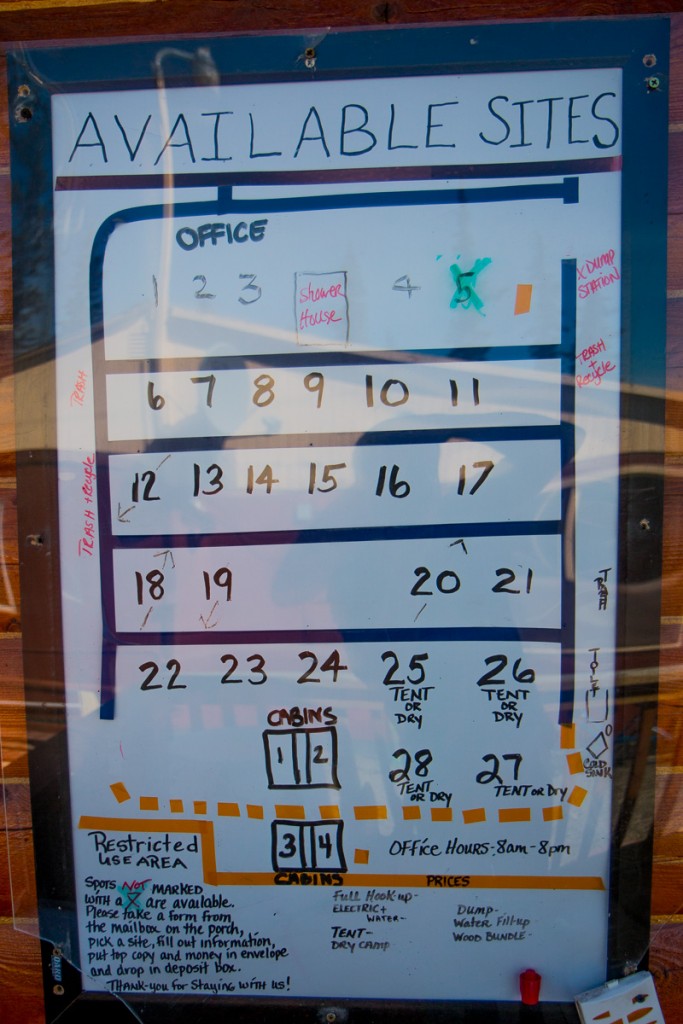 AVAILABLE SITES
OFFICE
1 2 3 Shower House 4 5
X DUMP STATION
TRASH
TRASH + Recycle
6 7 8 9 10 11
TRASH + Recycle
12 13 14 15 16 17
18 19 20 21
TRASH
22 23 24 25 26
TENT OR DRY
TENT OR DRY
TOILET
CABINS
1 2
28 27
TENT OR DRY
TENT OR DRY
3 4
CABINS
Restricted
USE AREA
OFFICE HOURS: 8am - 8pm
PRICES
SPOTS NOT MARKED
WITH a X are available.
Please take a form from
the mailbox on the porch,
pick a site, fill out information,
put top copy and money in envelope
and drop in deposit box.
THANK-you for Staying with us!
Full Hook-up-
ELECTRIC +
WATER-
TENT-
DRY CAMP
Dump-
Water Fill-up
WOOD BUNDLE-